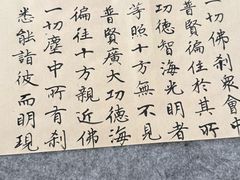 一切佛刹眾會中
普賢徧住於其所
功德智海光明者
等照十方無不見
普賢廣大功德海
徧往十方親近佛
一切塵中所有刹
悉能詣彼而明現